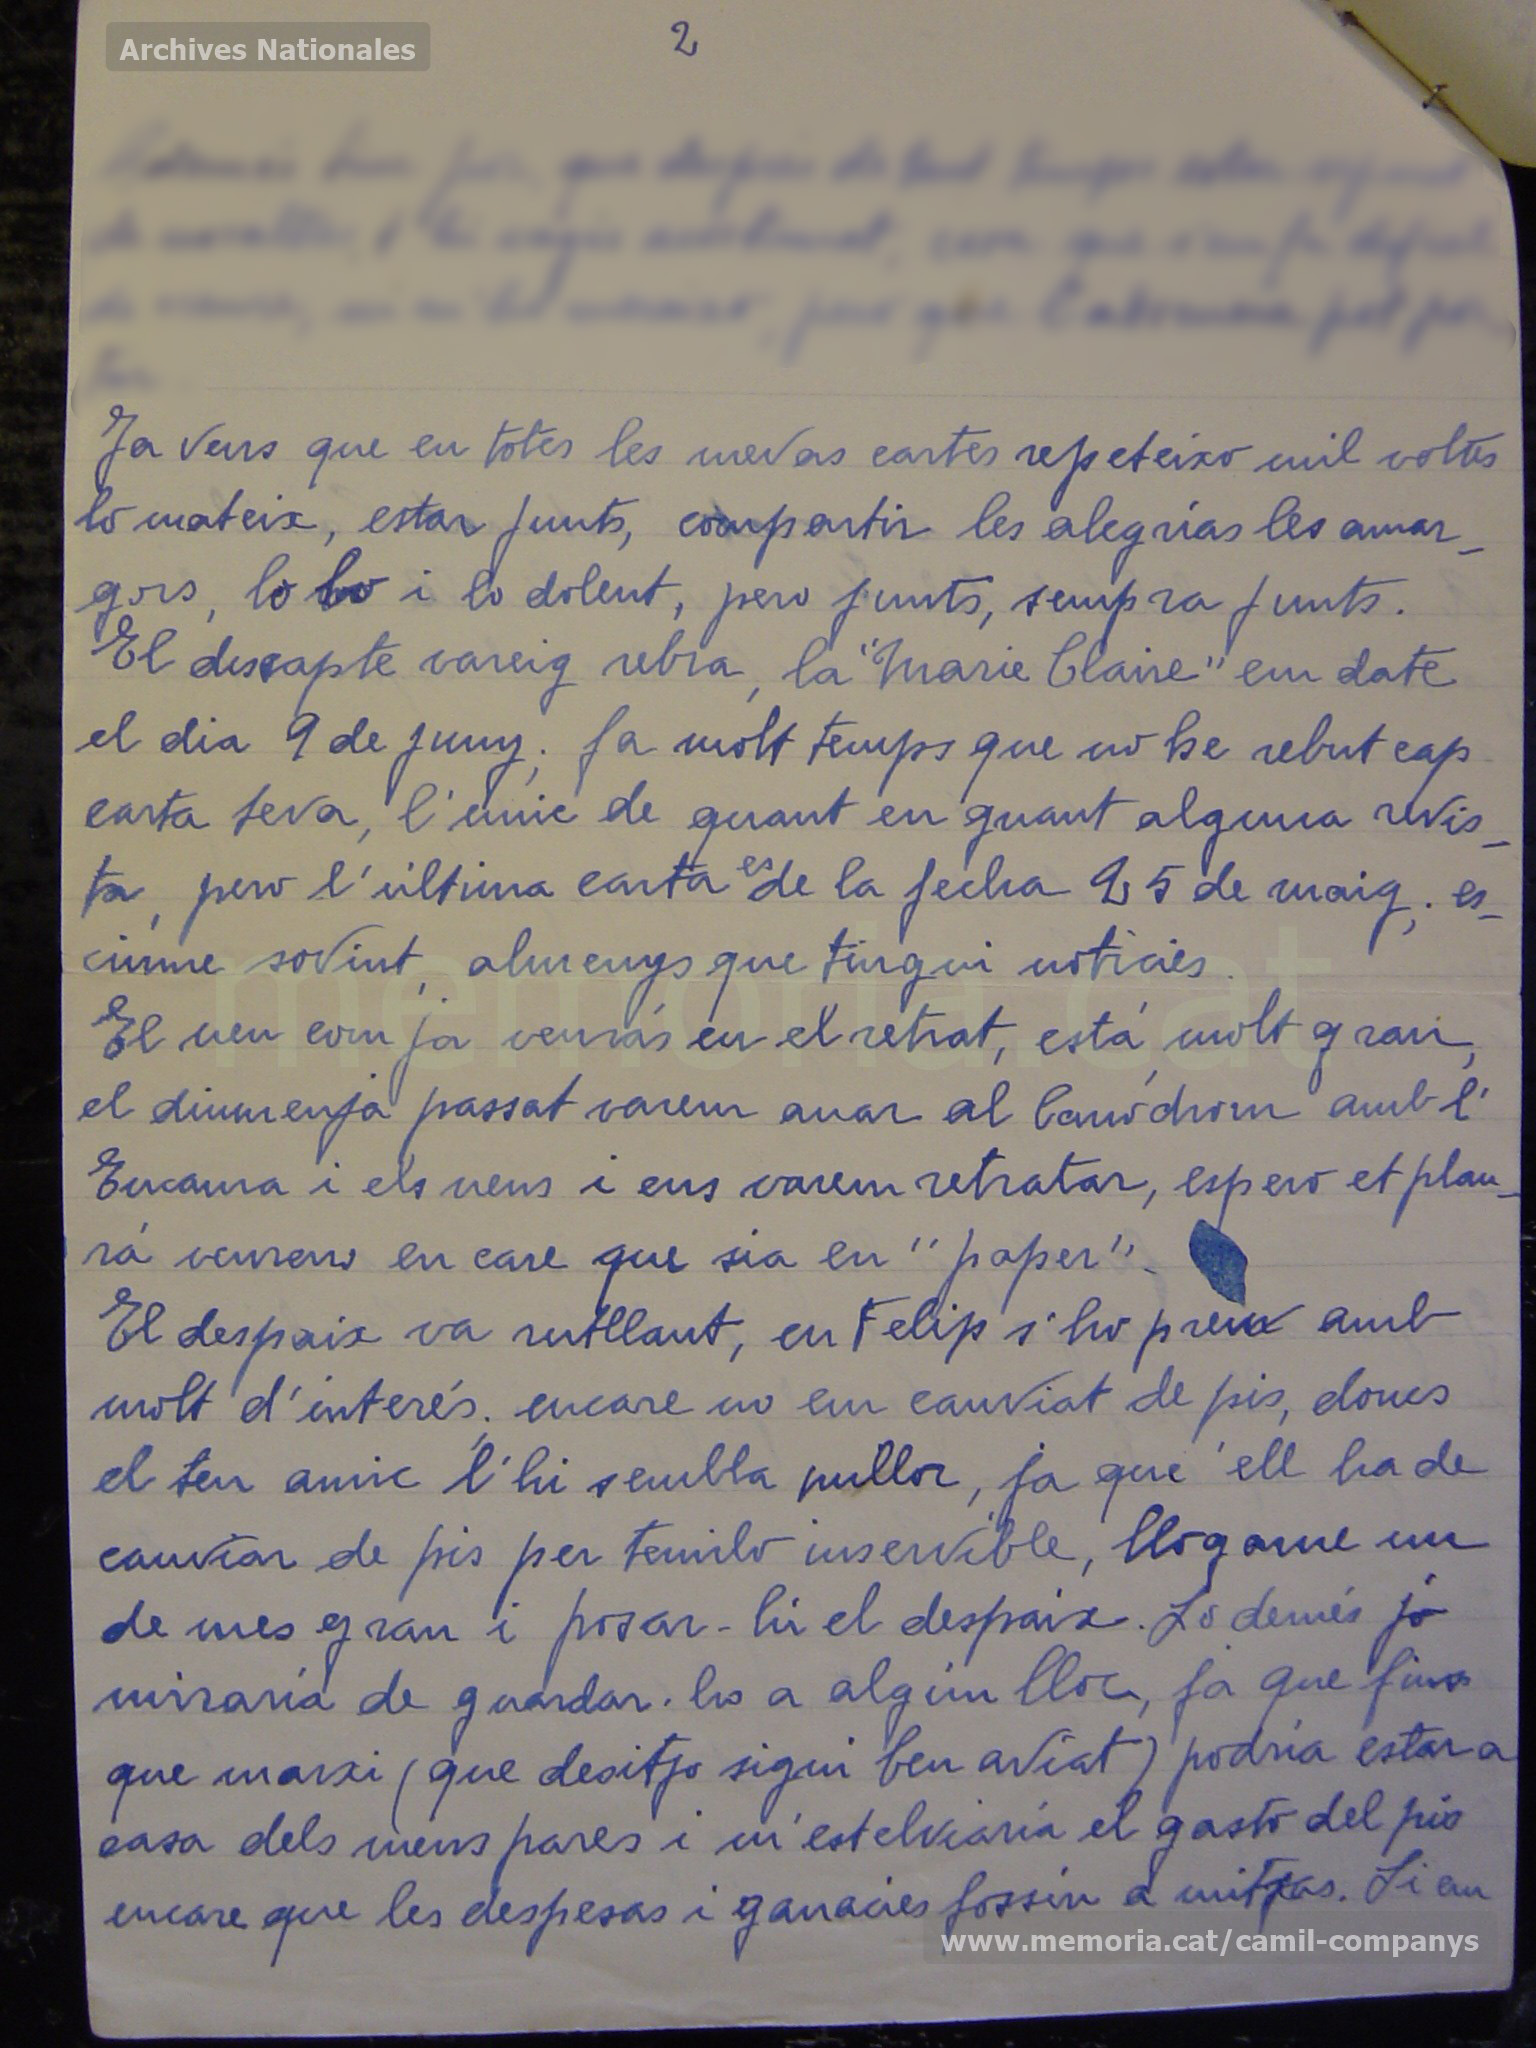 Archives Nationales
2
Ja veus que en totes les mevas cartes repeteixo mil voltes
lo mateix, estar junts, compartir les alegrías les amar-
gors, lo bo i lo dolent, pero junts, sempra junts.
El discapte vareig rebra, la "Marie Claire" em date
el dia 9 de juny; fa molt temps que no he rebut cap
carta teva, l'unic de quant en quant alguna revis-
ta, pero l'última carta es de la fecha 25 de maig; es-
criume sovint, almenys que tingui noticies.
El nen com ja veurás en el retrat, está molt gran,
el diumenja passat varem anar al Canódrom amb l'
Encarna i els nens i ens varem retratar, espero et plau-
rá veurens encare que sia en "paper".
El despaix va rutllant, en Felip s'ho preux amb
molt d'interés; encare no em canviat de pis, doncs
el teu amic l'hi sembla millor, ja que ell ha de
canviar de pis per tenirlo inservible, llogarne un
de mes gran i posar-hi el despaix. Lo demés jo
miraría de guardar-ho a algún lloc, ja que fins
que marxi (que desitjo sigui ben aviat) podría estar a
casa dels meus pares i m'estelviaría el gasto del pis
encare que les despesas i ganacies fossin a mitjas. Si em
memoria.cat
www.memoria.cat/camil-companys